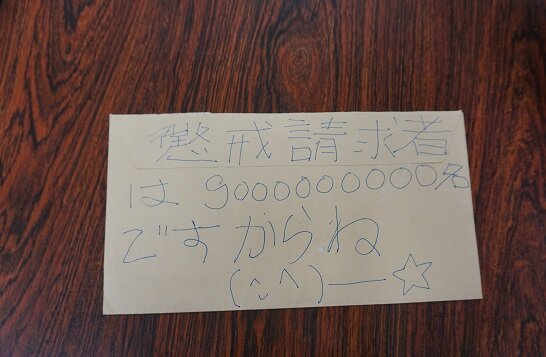 懲戒請求者
は 9000000000名
ですからね
(^◡^)―☆